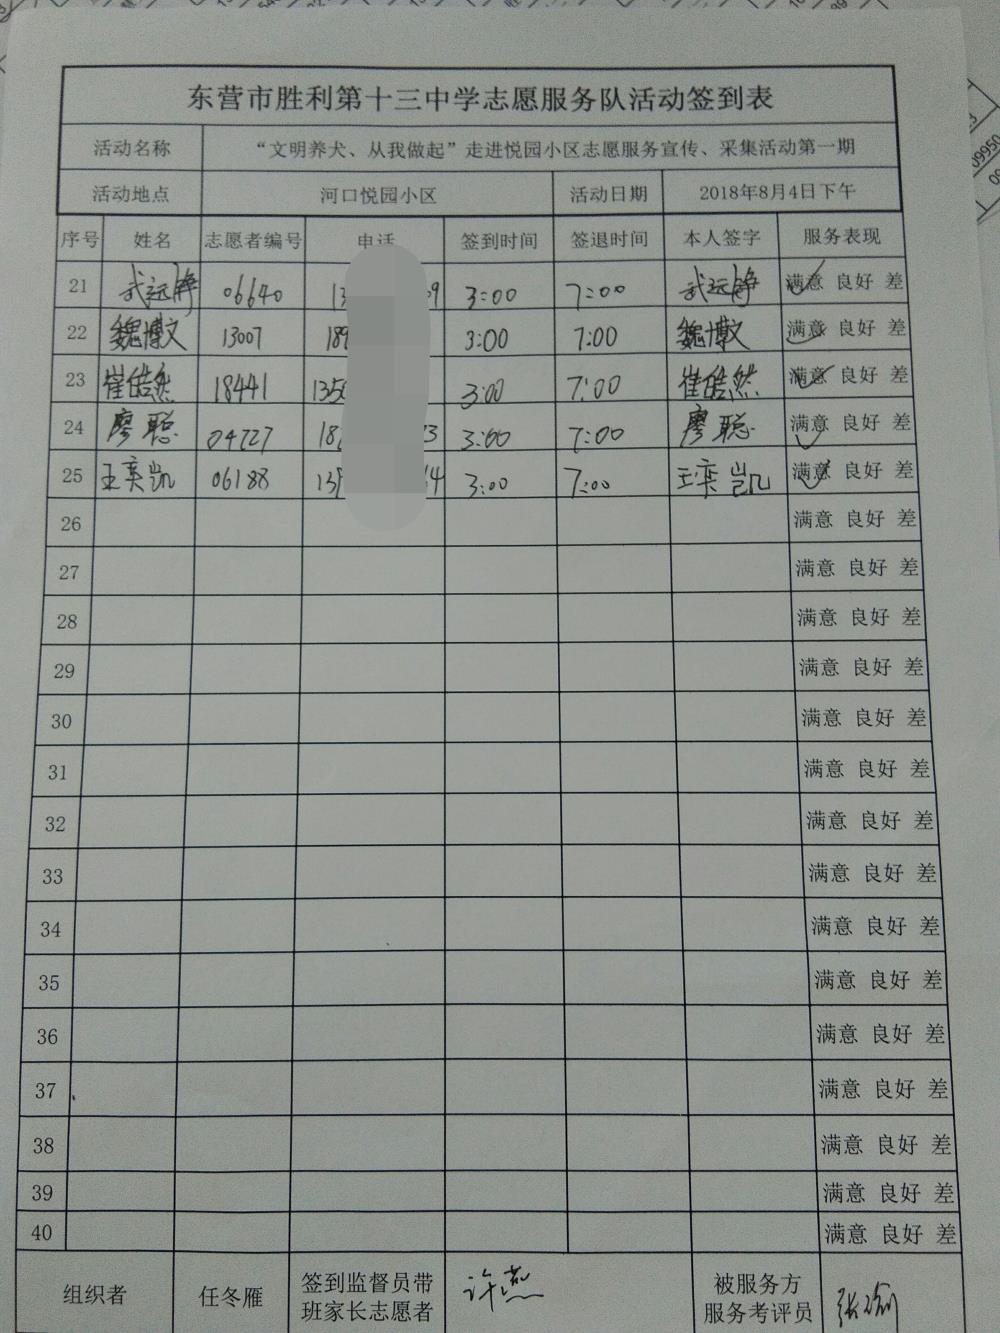 东营市胜利第十三中学志愿服务队活动签到表
活动名称 “文明养犬、从我做起”走进悦园小区志愿服务宣传、采集活动第一期
活动地点 河口悦园小区 活动日期 2018年8月4日下午
序号 姓名 志愿者编号 电话 签到时间 签退时间 本人签字 服务表现
21 武远铮 06640 13 9 3:00 7:00 武远铮 满意 良好 差
22 魏博文 13007 189 3:00 7:00 魏博文 满意 良好 差
23 崔皓然 18441 135 3:00 7:00 崔皓然 满意 良好 差
24 廖聪 04727 18 3 3:00 7:00 廖聪 满意 良好 差
25 王奕凯 06188 13 64 3:00 7:00 王奕凯 满意 良好 差
26 满意 良好 差
27 满意 良好 差
28 满意 良好 差
29 满意 良好 差
30 满意 良好 差
31 满意 良好 差
32 满意 良好 差
33 满意 良好 差
34 满意 良好 差
35 满意 良好 差
36 满意 良好 差
37 满意 良好 差
38 满意 良好 差
39 满意 良好 差
40 满意 良好 差
组织者 任冬雁 签到监督员带 许燕 被服务方
班家长志愿者 服务考评员